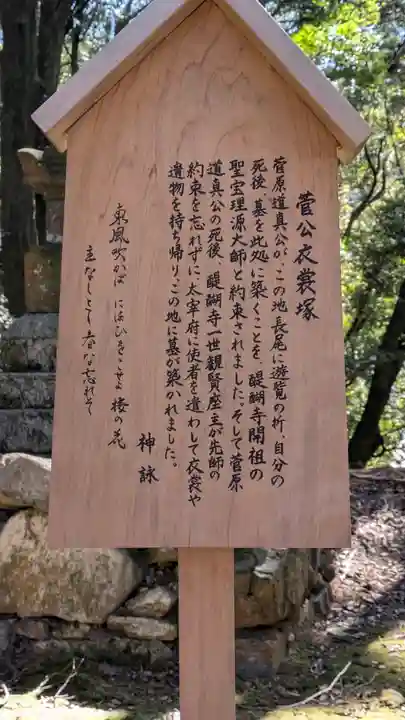 菅公衣裳塚
菅原道真公が、この地長尾に遊覧の折、自分の
死後、墓を此処に築くことを、醍醐寺開祖の
聖宝理源大師と約束されました。そして菅原
道真公の死後、醍醐寺一世観賢座主が先師の
約束を忘れずに、太宰府に使者を遣わして衣裳や
遺物を持ち帰り、この地に墓が築かれました。
神詠
東風吹かば にほひをこせよ 梅の花
主なしとて 春な忘れそ